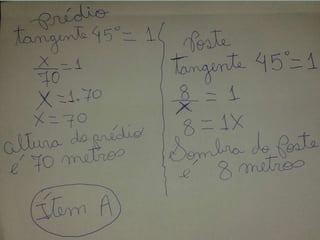 prédio
tangente 45° = 1
x/70 = 1
X = 1.70
X = 70
altura do prédio
é 70 metros
Ítem A
Poste
tangente 45° = 1
8/x = 1
8 = 1X
Sombra do Poste
é 8 metros